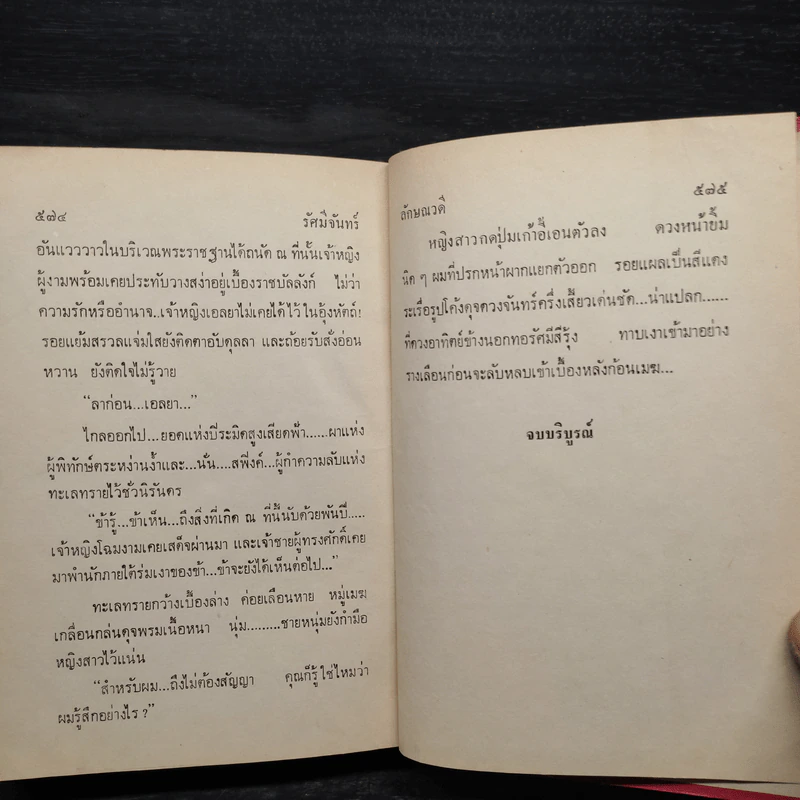 ๕๗๔ รัศมีจันทร์
อันแวววาวในบริเวณพระราชฐานได้ถนัด ณ ที่นั้นเจ้าหญิง
ผู้งามพร้อมเคยประทับวางสง่าอยู่เบื้องราชบัลลังก์ ไม่ว่า
ความรักหรืออำนาจ..เจ้าหญิงเอลยาไม่เคยได้ไว้ในอุ้งหัตถ์!
รอยแย้มสรวลแจ่มใสยังติดตาอับดุลลา และถ้อยรับสั่งอ่อน
หวาน ยังติดใจไม่รู้วาย
“ลาก่อน...เอลยา...”
ไกลออกไป...ยอดแห่งปีระมิดสูงเสียดฟ้า......ผาแห่ง
ผู้พิทักษ์ตระหง่านง้ำและ...นั่น....สฟิงค์...ผู้กำความลับแห่ง
ทะเลทรายไว้ชั่วนิรันดร
“ข้ารู้...ข้าเห็น...ถึงสิ่งที่เกิด ณ ที่นี้นับด้วยพันปี.....
เจ้าหญิงโฉมงามเคยเสด็จผ่านมา และเจ้าชายผู้ทรงศักดิ์เคย
มาพำนักภายใต้ร่มเงาของข้า...ข้าจะยังได้เห็นต่อไป...”
ทะเลทรายกว้างเบื้องล่าง ค่อยเลือนหาย หมู่เมฆ
เกลื่อนกล่นดุจพรมเนื้อหนา นุ่ม.........ชายหนุ่มยังกำมือ
หญิงสาวไว้แน่น
“สำหรับผม...ถึงไม่ต้องสัญญา คุณก็รู้ใช่ไหมว่า
ผมรู้สึกอย่างไร ?”
ลักษณวดี ๕๗๕
หญิงสาวกดปุ่มเก้าอี้เอนตัวลง ดวงหน้ายิ้ม
นิด ๆ ผมที่ปรกหน้าผากแยกตัวออก รอยแผลเป็นสีแดง
ระเรื่อรูปโค้งดุจดวงจันทร์ครึ่งเสี้ยวเด่นชัด...น่าแปลก......
ที่ดวงอาทิตย์ข้างนอกทอรัศมีสีรุ้ง ทาบเงาเข้ามาอย่าง
รางเลือนก่อนจะลับหลบเข้าเบื้องหลังก้อนเมฆ...
จบบริบูรณ์